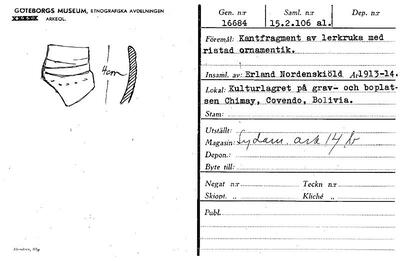 GÖTEBORGS MUSEUM, ETNOGRAFISKA AVDELNINGEN
ARKEOL.
4cm
Gen. n:r Saml. n:r Dep. n:r
16684 15.2.106 al.
Föremål: Kantfragment av lerkruka med
ristad ornamentik.
Insaml. av: Erland Nordenskiöld År 1913-14.
Lokal: Kulturlagret på grav- och boplat-
sen Chimay, Covendo, Bolivia.
Stam:
Utställt:
Magasin: Sydam. ark 14 b
Depon.:
Byte till:
Negat n:r Teckn n:r
Skiopt. „ Kliché „
Publ.